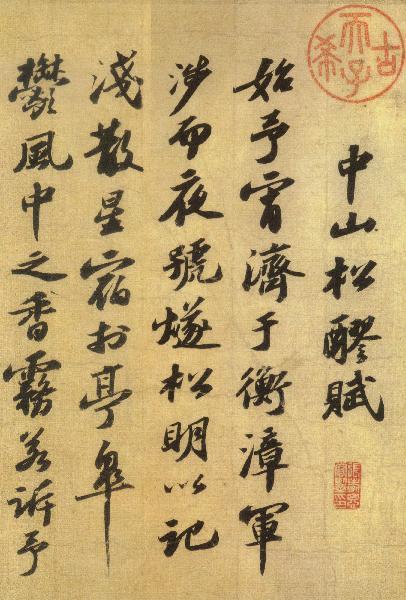 古希天子
中山松醪賦
始予宵濟于衡漳軍
涉而夜號燧松明以記
淺散星宿於亭皋
鬱風中之香霧若訴予